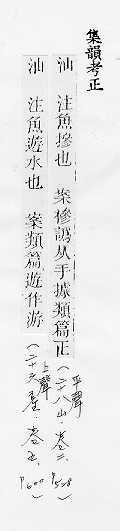 集韻考正
汕 注魚摻也 案摻譌从手據類篇正
(平聲二十八山、卷二、P508)
汕 注魚遊水也 案類篇遊作游
(上聲二十六產、卷五、P600)